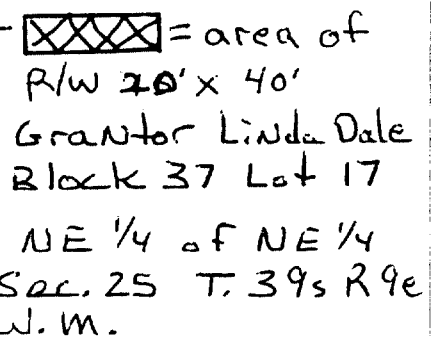 = area of
R/W 20' x 40'
Grantor Linda Dale
Block 37 Lot 17
NE 1/4 of NE 1/4
Sec. 25 T. 39s R 9e
W. m.